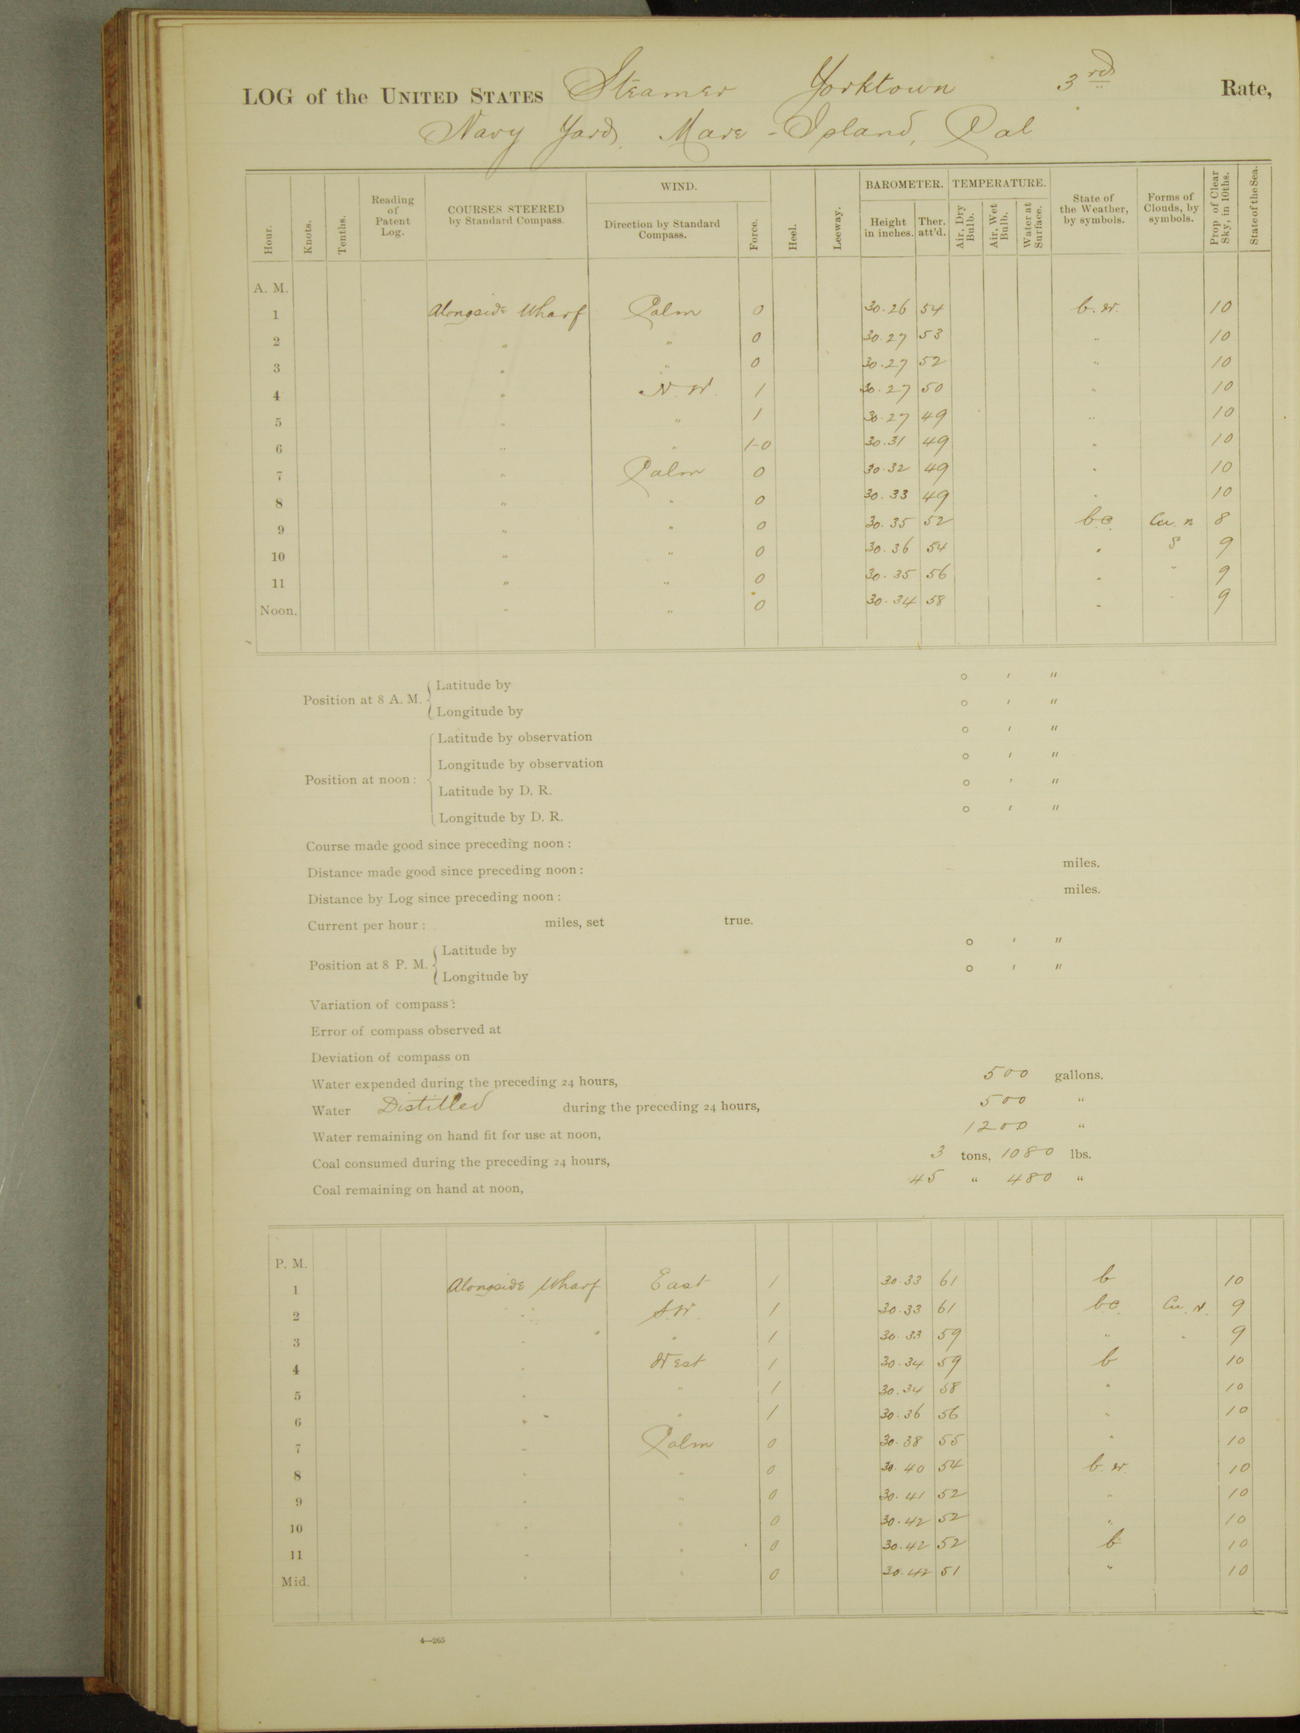 LOG of the UNITED STATES Steamer Yorktown 3rd Rate,
Navy Yard, Mare-Island, Cal
Hour. Knots. Tenths. Reading of Patent Log. COURSES STEERED by Standard Compass. WIND. Direction by Standard Compass. Force. Heel. Leeway. BAROMETER. Height in inches. Ther. att'd. TEMPERATURE. Air, Dry Bulb. Air, Wet Bulb. Water at Surface. State of the Weather, by symbols. Forms of Clouds, by symbols. Prop. of Clear Sky, in 10ths. State of the Sea.
A. M.
1 Alongside Wharf Calm 0 30.26 54 b.w. 10
2 " " 0 30.27 53 " 10
3 " " 0 30.27 52 " 10
4 " N.W. 1 30.27 50 " 10
5 " " 1 30.27 49 " 10
6 " " 1-0 30.31 49 " 10
7 " Calm 0 30.32 49 " 10
8 " " 0 30.33 49 " 10
9 " " 0 30.35 52 b.c. Cu. n 8
10 " " 0 30.36 54 " S 9
11 " " 0 30.35 56 " " 9
Noon. " " 0 30.34 58 " " 9
Position at 8 A. M. { Latitude by ° ' "
Longitude by ° ' "
Position at noon: { Latitude by observation ° ' "
Longitude by observation ° ' "
Latitude by D. R. ° ' "
Longitude by D. R. ° ' "
Course made good since preceding noon:
Distance made good since preceding noon: miles.
Distance by Log since preceding noon: miles.
Current per hour: miles, set true.
Position at 8 P. M. { Latitude by ° ' "
Longitude by ° ' "
Variation of compass:
Error of compass observed at
Deviation of compass on
Water expended during the preceding 24 hours, 500 gallons.
Water Distilled during the preceding 24 hours, 500 "
Water remaining on hand fit for use at noon, 1200 "
Coal consumed during the preceding 24 hours, 3 tons, 1080 lbs.
Coal remaining on hand at noon, 45 " 480 "
P. M.
1 Alongside Wharf East 1 30.33 61 b 10
2 " S.W. 1 30.33 61 bc. Cu. N. 9
3 " " 1 30.33 59 " " 9
4 " West 1 30.34 59 b 10
5 " " 1 30.34 58 " 10
6 " " 1 30.36 56 " 10
7 " Calm 0 30.38 55 " 10
8 " " 0 30.40 54 b.w. 10
9 " " 0 30.41 52 " 10
10 " " 0 30.42 52 " 10
11 " " 0 30.42 52 b 10
Mid. " " 0 30.42 51 " 10
4—265